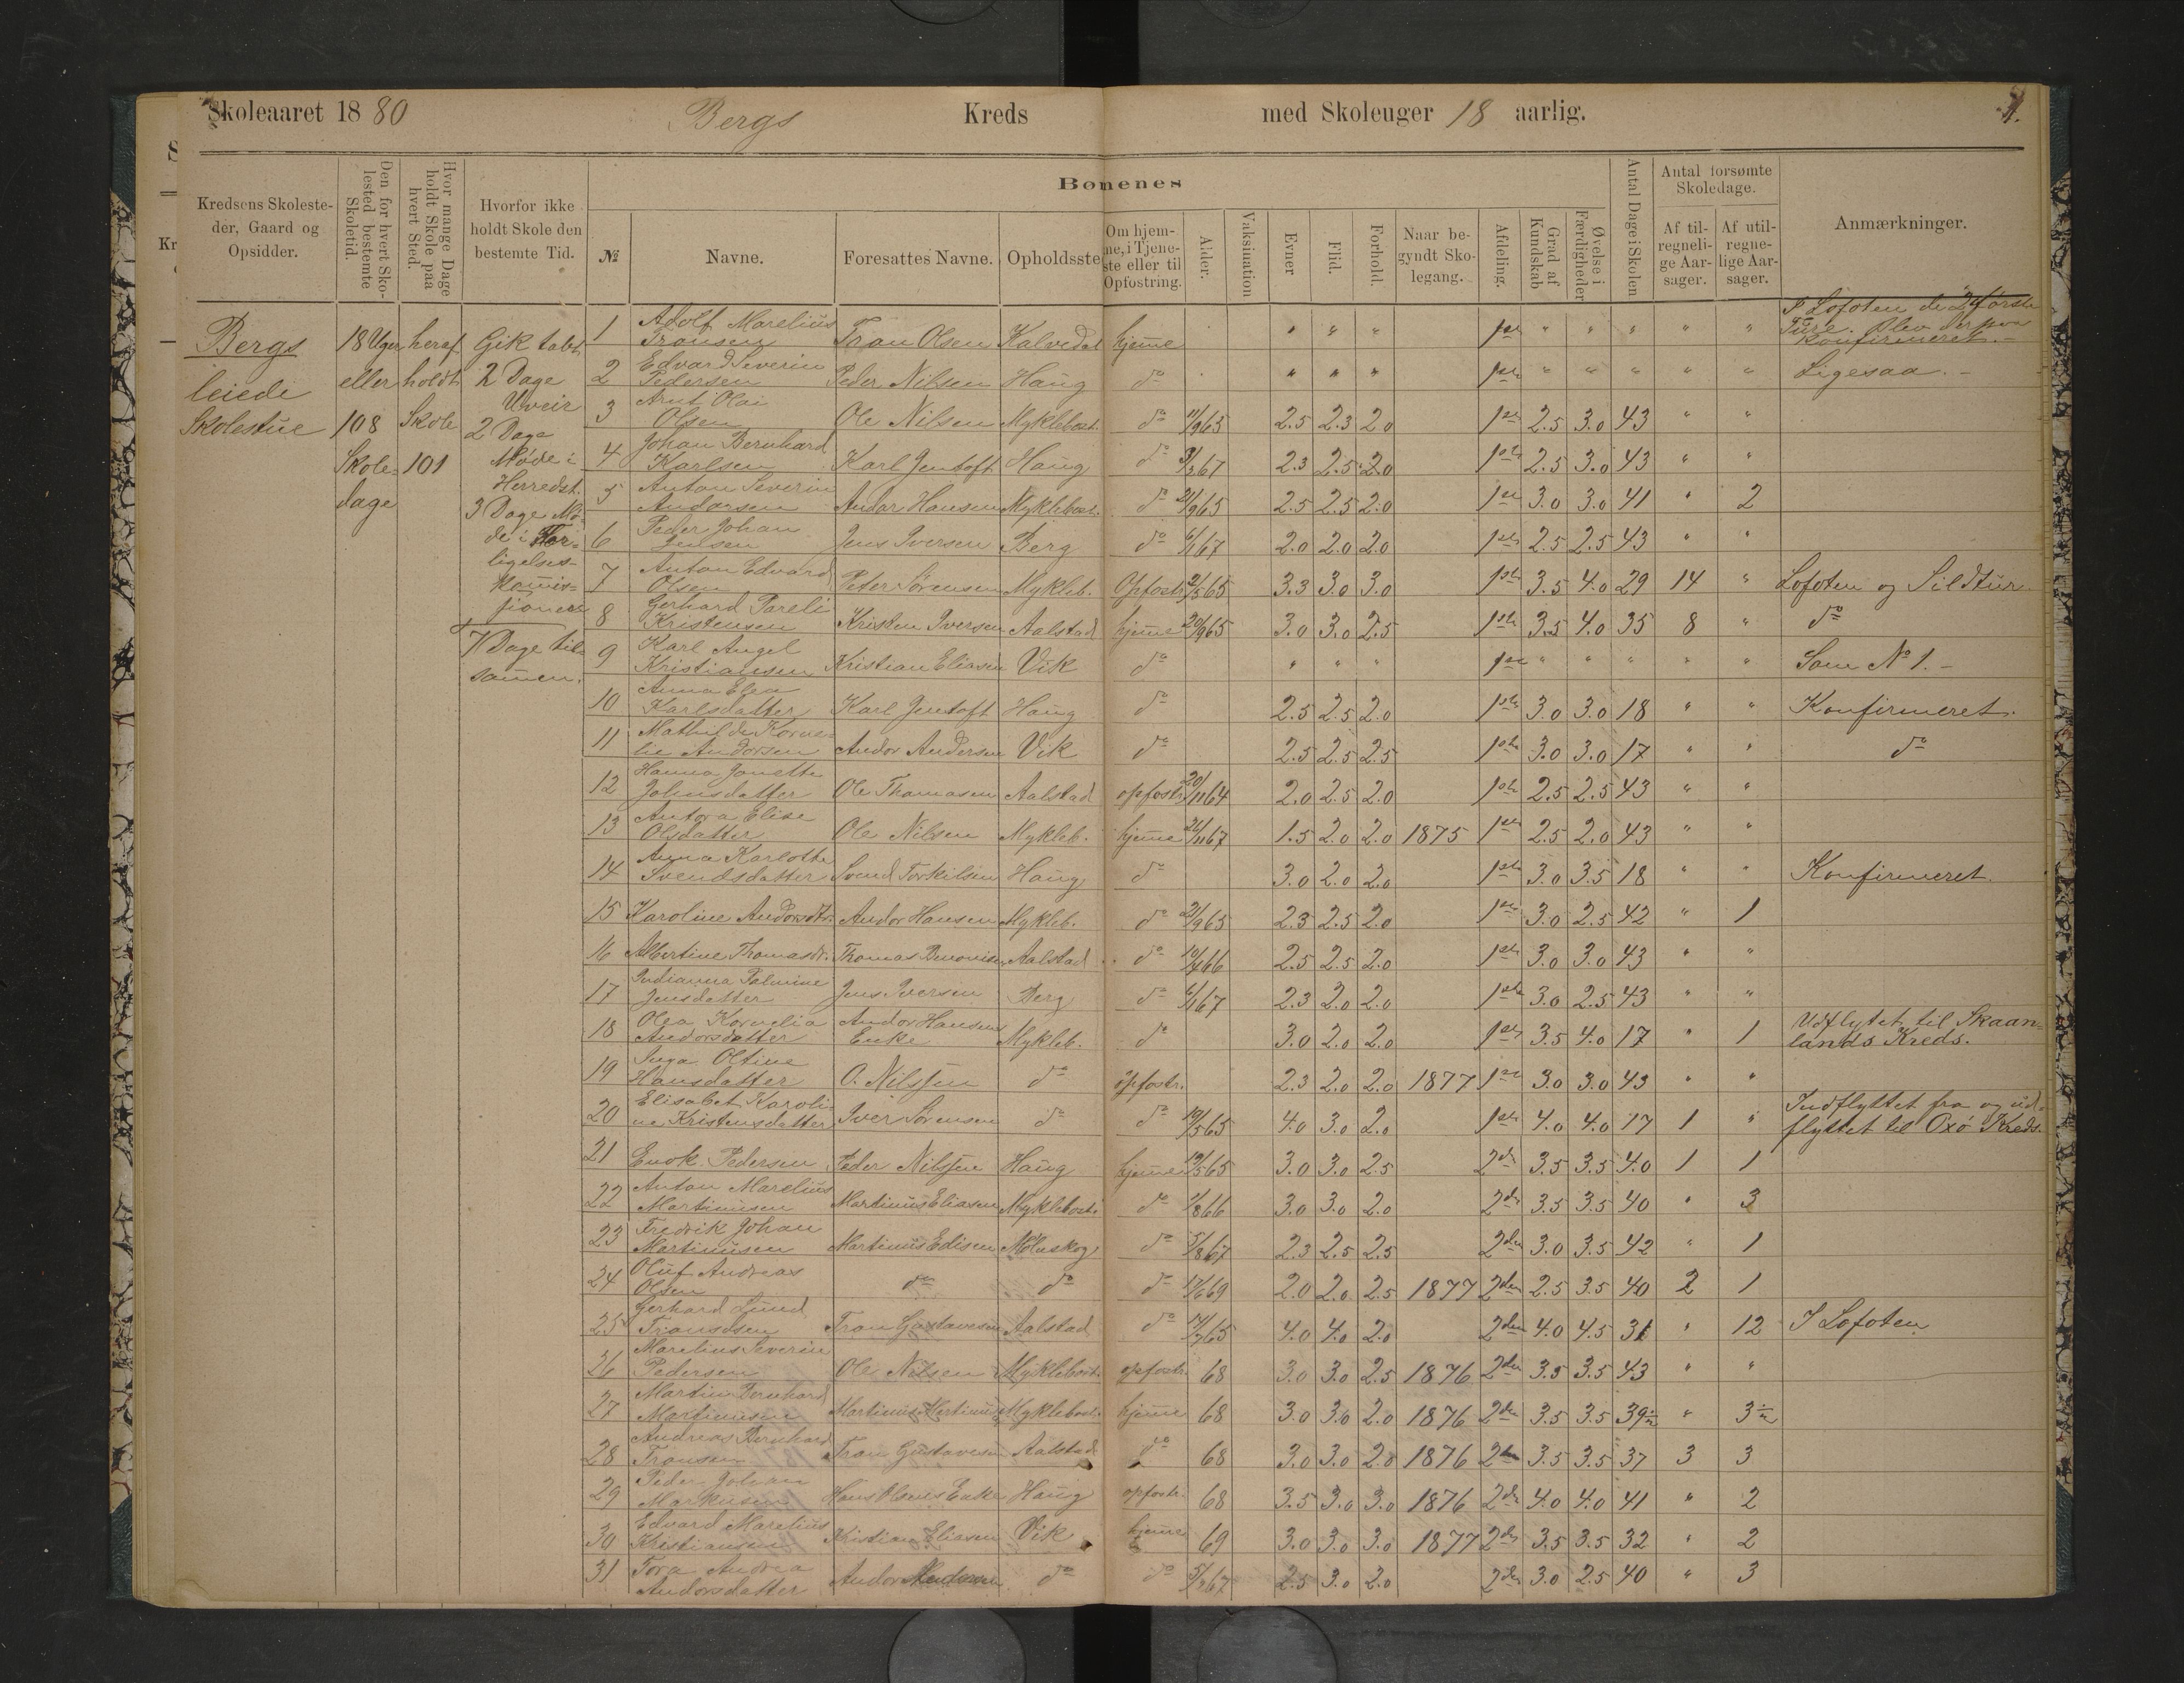 Skoleaaret 1880 Bergs Kreds med Skoleuger 18 aarlig. 1.
Kredsens Skolesteder, Gaard og Opsidder.
Den for hvert Skolested bestemte Skoletid.
Hvor mange Dage holdt Skole paa hvert Sted.
Hvorfor ikke holdt Skole den bestemte Tid.
Børnenes
№
Navne.
Foresattes Navne.
Opholdsste
Om hjemme, i Tjeneste eller til Opfostring.
Alder.
Vaksination
Evner
Flid.
Forhold.
Naar begyndt Skolegang.
Afdeling.
Grad af Kundskab
Øvelse i Færdigheder
Antal Dage i Skolen
Antal forsømte Skoledage.
Af tilregnelige Aarsager.
Af utilregnelige Aarsager.
Anmærkninger.
Bergs
leiede
Skolestue
18 Uger
eller
108
Skole-
dage
heraf
holdt
Skole
101
Gik tabt
2 Dage
Uveir
2 Dage
Møde i
Herredst.
3 Dage Mø-
de i For-
ligelses-
Komis-
sionen
7 Dage til-
samen.
1 Adolf Marelius Transen Tran Olsen Kalvedal hjeme " " " 1ste " " " " " I Lofoten de første Ture. Blev derpaa konfirmeret. -
2 Edvard Severin Pedersen Peder Nilsen Haug do " " " 1ste " " " " " Ligesaa. -
3 Arnt Olai Olsen Ole Nilsen Myklebost. do 11/9 65 2.5 2.3 2.0 1ste 2.5 3.0 43 " "
4 Johan Bernhard Karlsen Karl Jentoft Haug do 67 2.3 2.5 2.0 1ste 2.5 3.0 43 " "
5 Anton Severin Andorsen Andor Hansen Myklebost. do 21/9 65 2.5 2.5 2.0 1ste 3.0 3.0 41 " 2
6 Peder Johan Jensen Jens Iversen Berg do 6/1 67 2.0 2.0 2.0 1ste 2.5 2.5 43 " "
7 Anton Edvard Olsen Peter Sørensen Mykleb. Opfostr. 65 3.3 3.0 3.0 1ste 3.5 4.0 29 14 " Lofoten og Sildtur
8 Gerhard Pareli Kristensen Kristen Iversen Aalstad hjeme 20/9 65 3.0 3.0 2.5 1ste 3.5 4.0 35 8 " do
9 Karl Angel Kristiansen Kristian Eliasen Vik do " " " 1ste " " " " " Som No 1. -
10 Anna Elea Karlsdatter Karl Jentoft Haug do 2.5 2.5 2.0 1ste 3.0 3.0 18 " " Konfirmeret.
11 Mathilde Korne- lie Andorsen Andor Andersen Vik do 2.5 2.5 2.5 1ste 3.0 3.0 17 " " do
12 Hanna Janette Johnsdatter Ole Thomasen Aalstad opfostr. 20/11 64 2.0 2.5 2.0 1ste 2.5 2.5 43 " "
13 Antora Elise Olsdatter Ole Nilsen Mykleb. hjeme 26/11 67 1.5 2.0 2.0 1875 1ste 2.5 2.0 43 " "
14 Anna Karlotte Svendsdatter Svend Torkilsen Haug do 3.0 2.0 2.0 1ste 3.0 3.5 18 " " Konfirmeret.
15 Karoline Andorsdtr. Andor Hansen Mykleb. do 21/9 65 2.3 2.5 2.0 1ste 3.0 2.5 42 " 1
16 Albertine Thomasdr. Thomas Benonisen Aalstad do 10/4 66 2.5 2.5 2.0 1ste 3.0 3.0 43 " "
17 Indianna Palmine Jensdatter Jens Iversen Berg do 6/1 67 2.3 2.0 2.0 1ste 3.0 2.5 43 " "
18 Olea Kornelia Andorsdatter Andor Hansens Enke Mykleb. do 3.0 2.0 2.0 1ste 3.5 4.0 17 " 1 Udflytet til Skaan- lands Kreds.
19 Inga Oltine Hansdatter O. Nilssen do opfostr. 2.3 2.0 2.0 1877 1ste 3.0 3.0 43 " "
20 Elisabet Karoli- ne Kristensdatter Iver Sørensen do do 19/5 65 4.0 3.0 2.0 1ste 4.0 4.0 17 1 " Indflyttet fra og ud- flyttet til Oxø Kreds.
21 Enok Pedersen Peder Nilssen Haug hjeme 19/5 65 3.0 3.0 2.5 2den 3.5 3.5 40 1 1
22 Anton Marelius Martinusen Martinus Eliasen Myklebost. do 7/8 66 3.0 3.0 2.0 2den 3.5 3.5 40 " 3
23 Fredrik Johan Martinusen Martinus Edisen Moluskog do 5/8 67 2.3 2.5 2.5 2den 3.0 3.5 42 " 1
24 Oluf Andreas Olsen do do do 17/6 69 2.0 2.0 2.5 1877 2den 2.5 3.5 40 2 1
25 Gerhard Lund Transsen Tran Gustavesen Aalstad do 14/7 65 4.0 4.0 2.0 2den 4.0 4.5 31 " 12 I Lofoten
26 Marelius Severin Pedersen Ole Nilsen Myklebost. opfostr. 68 3.0 3.0 2.5 1876 2den 3.5 3.5 43 " "
27 Martin Bernhard Martinusen Martinus Martinus Myklebost. hjeme 68 3.0 3.0 2.0 1876 2den 3.5 3.5 39½ " 3½
28 Andreas Bernhard Transen Tran Gustavesen Aalstad do 68 3.0 3.0 2.0 1876 2den 3.5 3.5 37 3 3
29 Peder Johan Markusen Hans Olsens Enke Haug opfostr. 68 3.5 3.0 3.0 1876 2den 4.0 4.0 41 " 2
30 Edvard Marelius Kristiansen Kristian Eliasen Vik hjeme 69 3.0 3.0 3.0 1877 2den 3.5 3.5 32 " 2
31 Tora Andrea Andorsdatter Andor Andersen do do 67 2.5 3.0 2.0 2den 3.0 2.5 40 " 3